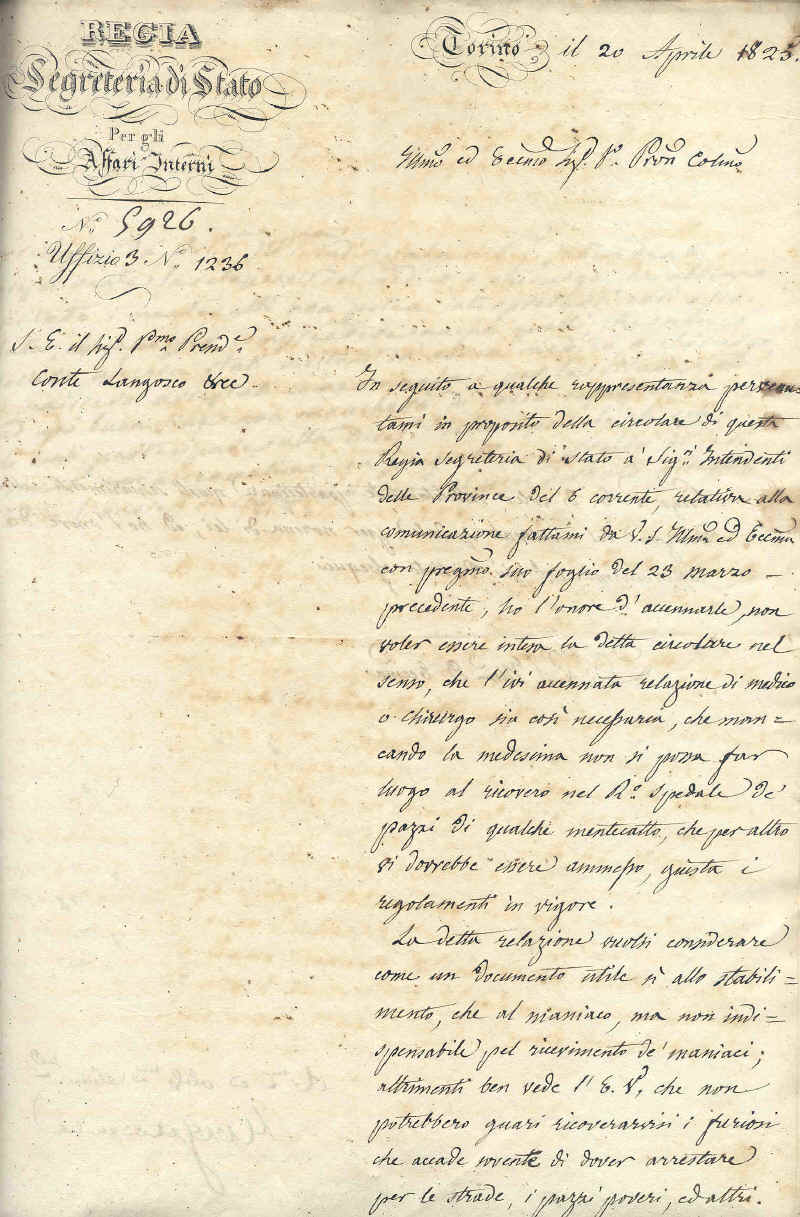 REGIA
Segreteria di Stato
Per gli
Affari Interni
N.° 5926.
Uffizio 3 N.° 1236
Torino il 20 Aprile 1825.
Illmo ed Eccmo Sigr. Pron Colmo
S. E. il Sigr. Pmo Presid.e
Conte Langosco &ec.
In seguito a qualche rappresentanza pervenu=
tami in proposito della circolare di questa
Regia Segreteria di Stato a' Sigri Intendenti
delle Province del 6 corrente, relativa alla
comunicazione fattami da V. S. Illma ed Eccma
con pregmo suo foglio del 23 marzo –
precedente, ho l'onore d'accennarle, non
voler essere intesa la detta circolare nel
senso, che l'ivi accennata relazione di medico
o chirurgo sia così necessaria, che man=
cando la medesima non si possa far
luogo al ricovero nel R.° Spedale de'
pazzi di qualche mentecatto, che per altro
vi dovrebbe essere ammesso, giusta i
regolamenti in vigore.
La detta relazione vuolsi considerare
come un documento utile sì allo stabili=
mento, che al maniaco, ma non indi=
spensabile pel ricevimento de' maniaci;
altrimenti ben vede l'E. V., che non
potrebbero guari ricoverarvisi i furiosi
che accade sovente di dover arrestare
per le strade, i pazzi poveri, ed altri.